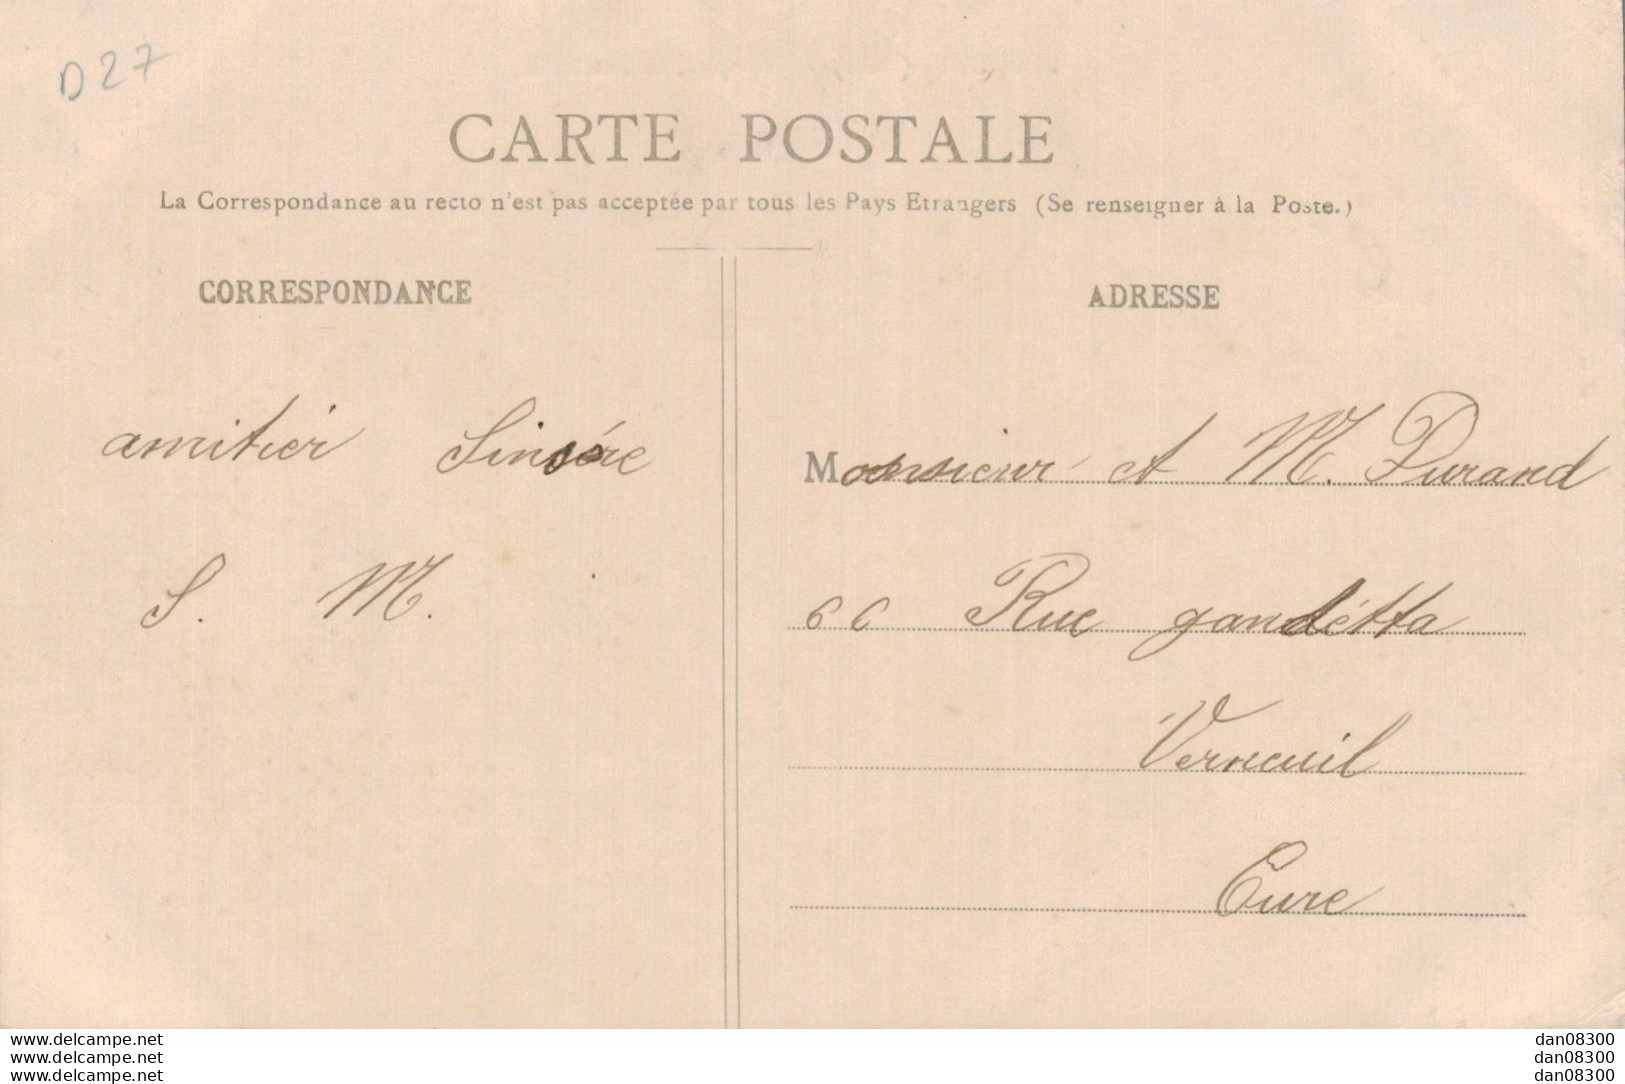 D27
CARTE POSTALE
La Correspondance au recto n'est pas acceptée par tous les Pays Etrangers (Se renseigner à la Poste.)
CORRESPONDANCE
amitier Sinsére
S. M.
ADRESSE
Monsieur et M. Durand
66 Rue gandétta
Verneuil
Eure
www.delcampe.net
www.delcampe.net
www.delcampe.net
dan08300
dan08300
dan08300